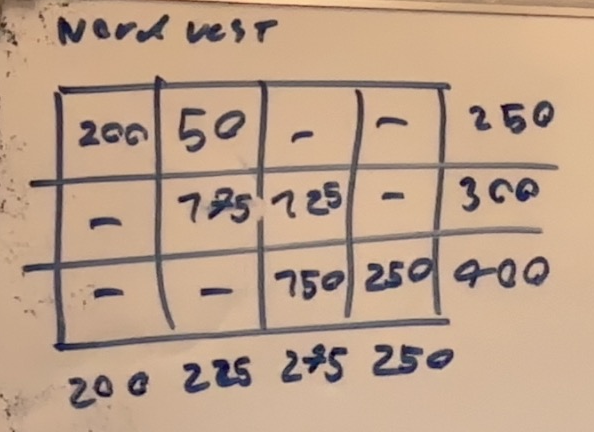 Nord vest
200 50 - - 250
- 175 125 - 300
- - 150 250 400
200 225 275 250